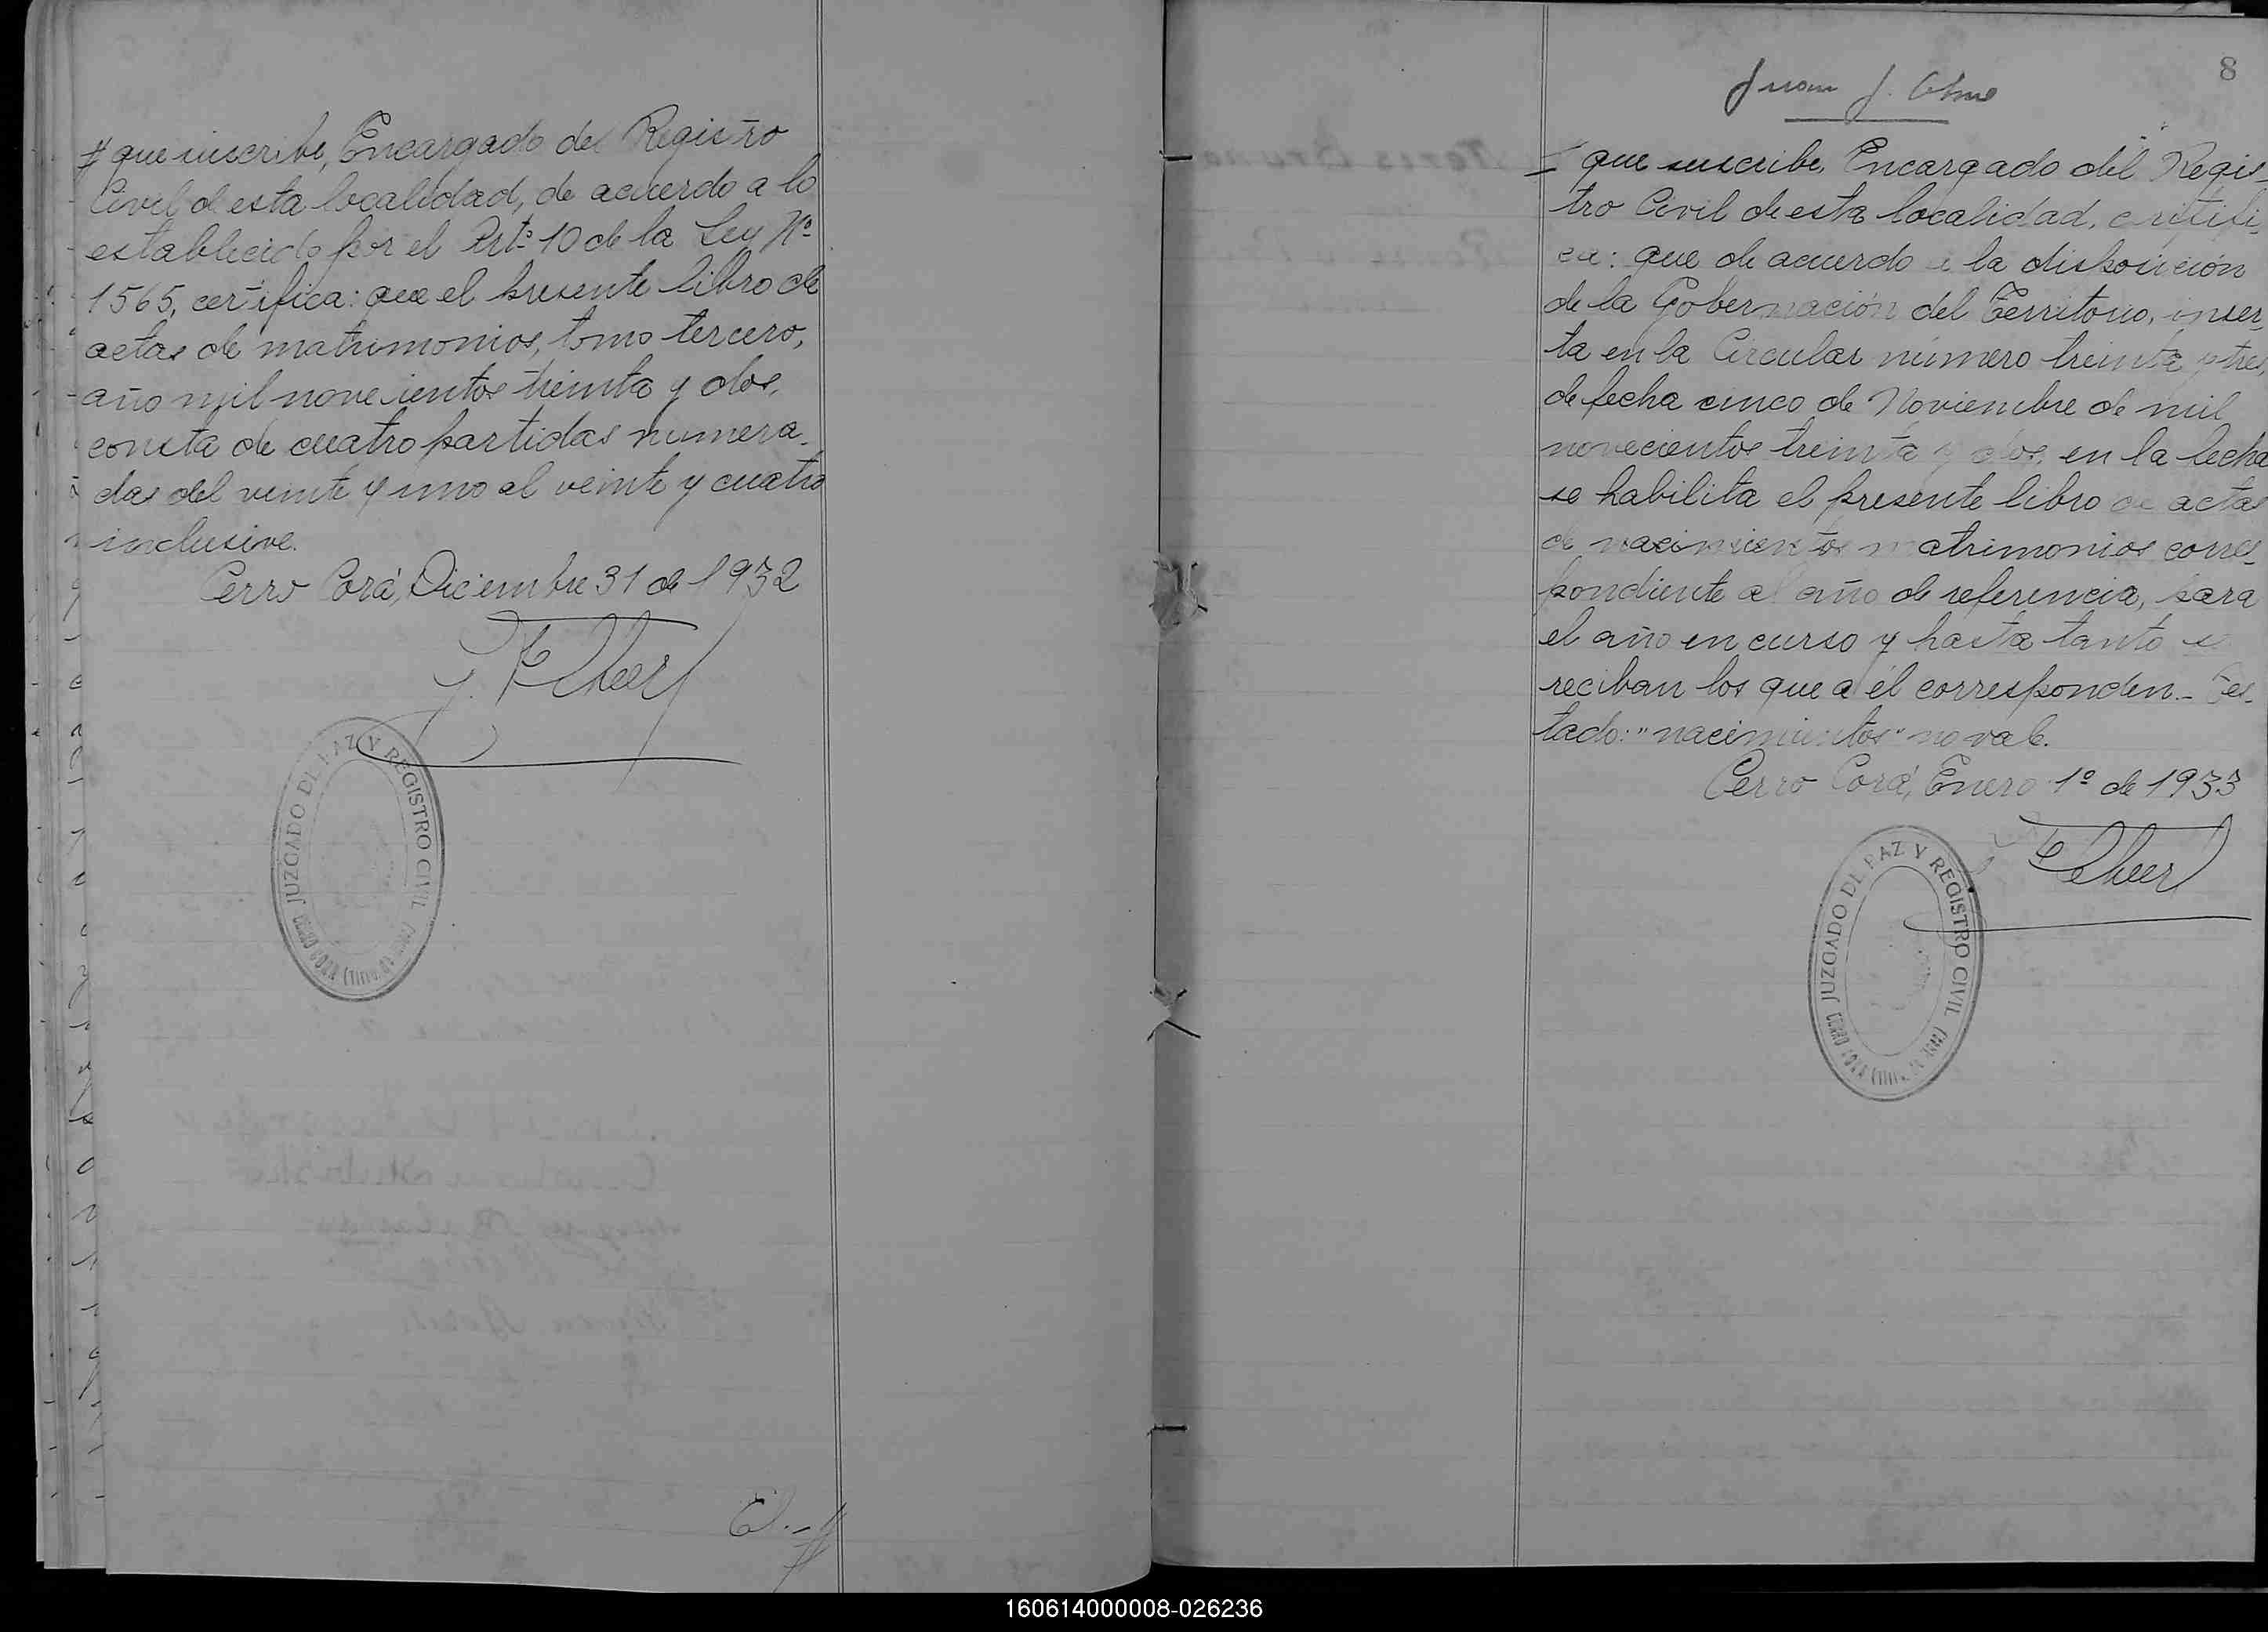 que suscribe, Encargado del Registro
Civil de esta localidad, de acuerdo a lo
establecido por el Art.º 10 de la Ley Nº
1565, certifica: que el presente libro de
actas de matrimonios, tomo tercero,
año mil novecientos treinta y dos,
consta de cuatro partidas numera-
das del veinte y uno al veinte y cuatro
inclusive.
Cerro Corá, Diciembre 31 de 1932
JUZGADO DE PAZ Y REGISTRO CIVIL
CERRO CORA
El.-#
8
Juan J.
que suscribe, Encargado del Regis-
tro Civil de esta localidad, certifi-
ca: que de acuerdo a la disposición
de la Gobernación del Territorio, inser-
ta en la Circular número treinta y tres,
de fecha cinco de Noviembre de mil
novecientos treinta y dos, en la fecha
se habilita el presente libro de actas
de nacimientos matrimonios corres-
pondiente al año de referencia, para
el año en curso y hasta tanto se
reciban los que a él corresponden.- Tes-
tado: "nacimientos" no vale.
Cerro Corá, Enero 1º de 1933
JUZGADO DE PAZ Y REGISTRO CIVIL
CERRO CORA
160614000008-026236